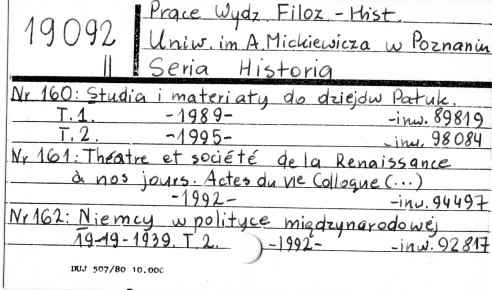 19092
II
Prace Wydz. Filoz.-Hist.
Uniw. im A. Mickiewicza w Poznaniu
Seria Historia
Nr 160: Studia i materiały do dziejów Pałuk.
T. 1. -1989- -inw. 89819
T. 2. -1995- -inw. 98084
Nr 161: Théatre et société de la Renaissance
à nos jours. Actes du VIe Colloque (...)
-1992- -inw. 94497
Nr 162: Niemcy w polityce międzynarodowej
19-19-1939. T. 2. -1992- -inw. 92817
DUJ 507/80 10.000